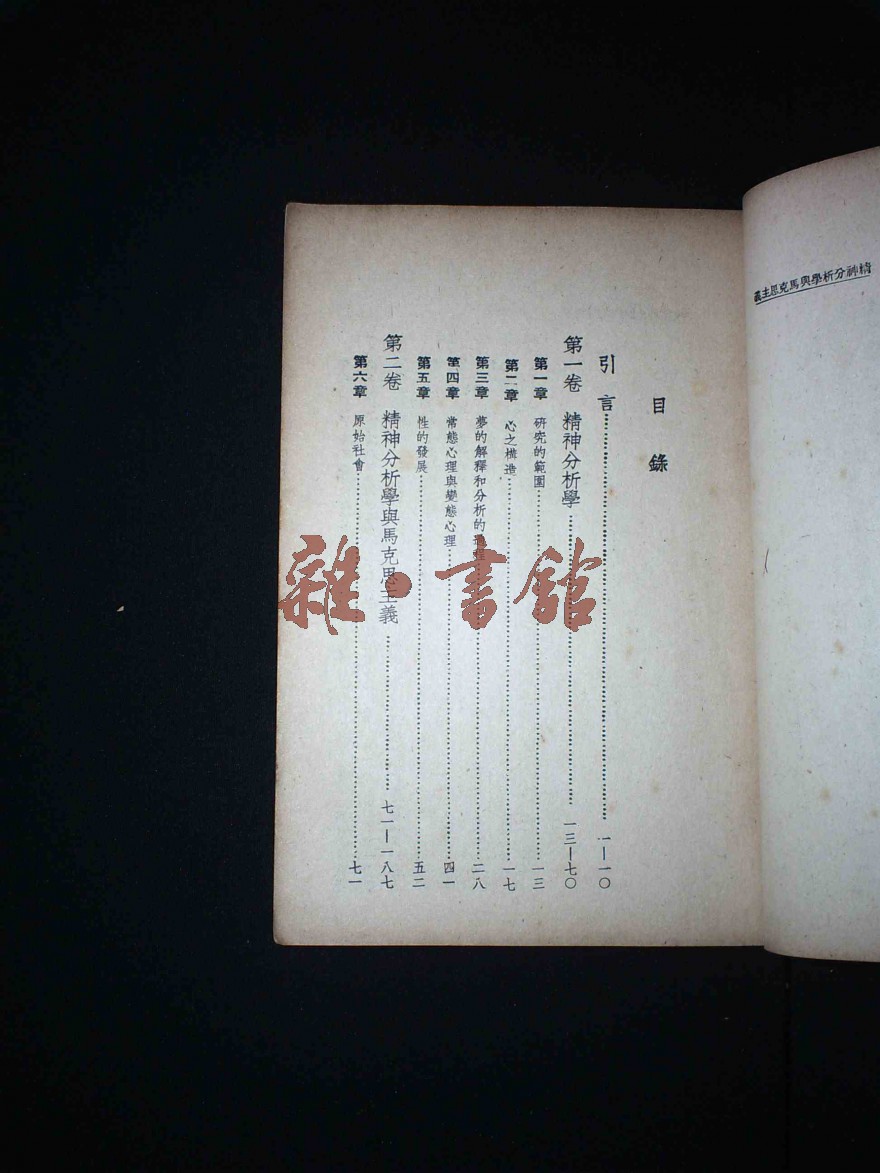 精神分析學與馬克思主義
目錄
引言……一—一〇
第一卷 精神分析學……一三—七〇
第一章 研究的範圍……一三
第二章 心之構造……一七
第三章 夢的解釋和分析的過程……二八
第四章 常態心理與變態心理……四一
第五章 性的發展……五二
第二卷 精神分析學與馬克思主義……七一—一八七
第六章 原始社會……七一
雜·書館